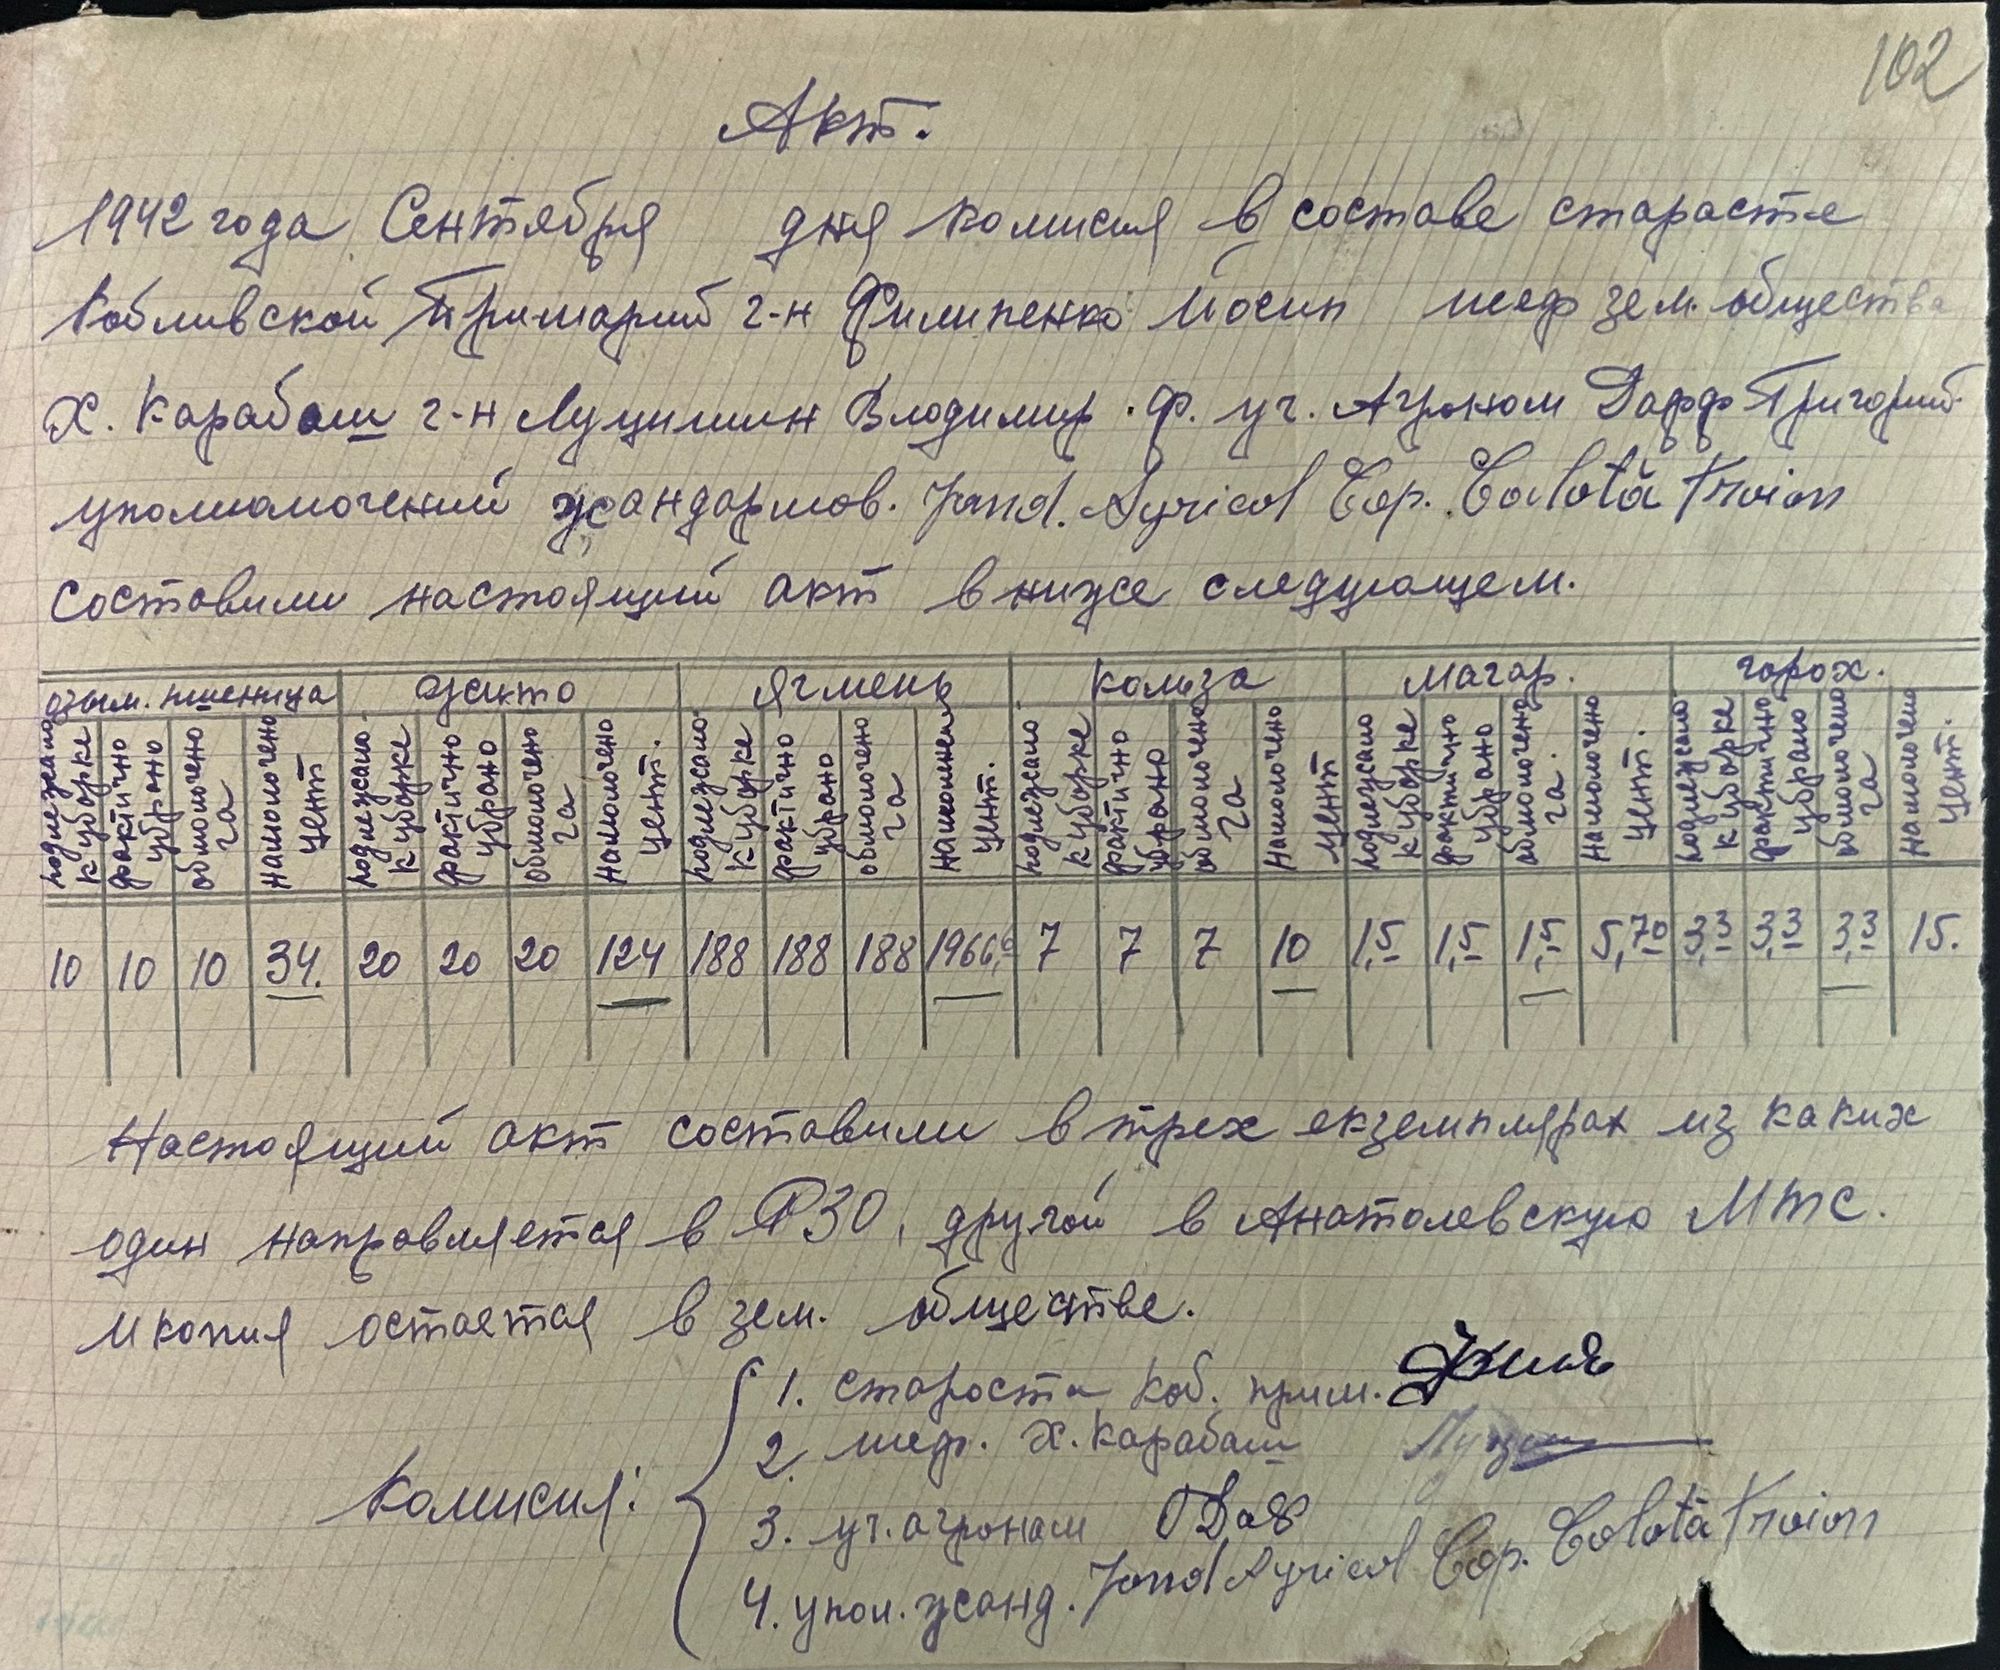 102
Акт.
1942 года Сентября дня комисия в составе старасте
Коблевской Примарий г-н Филипенко Иосип шеф зем. общества
Х. Карабаш г-н Луцишин Владимир. Ф. уч. Агроном Дафф Григорий
уполномочений жандармов. Jand. Agricol Cap. Calotă Troian
составили настоящий акт в ниже следующем.
озым. пшеница жито ячмень кольза магар. горох.
подлежало к уборке фактично убрано обмолочено га намолочено цент подлежало к уборке фактично убрано обмолочено га намолочено цент. подлежало к уборке фактично убрано обмолочено га намолочено цент. подлежало к уборке фактично убрано обмолочено га намолочено цент подлежало к уборке фактично убрано обмолочено га. намолочено цент. подлежало к уборке фактично убрано обмолочено га намолочено цент.
10 10 10 34. 20 20 20 124 188 188 188 1966,6 7 7 7 10 1,5 1,5 1,5 5,70 3,3 3,3 3,3 15.
Настоящий акт составили в трех екземплярах из каких
один направляется в РЗО, другой в Анатолевскую МТС.
и копия остается в зем. обществе.
Комисия:
1. староста Коб. прим.
2. шеф. Х. Карабаш Луцишин
3. уч. агроном Даф
4. упол. жанд. Jand Agricol Cap. Calotă Troian